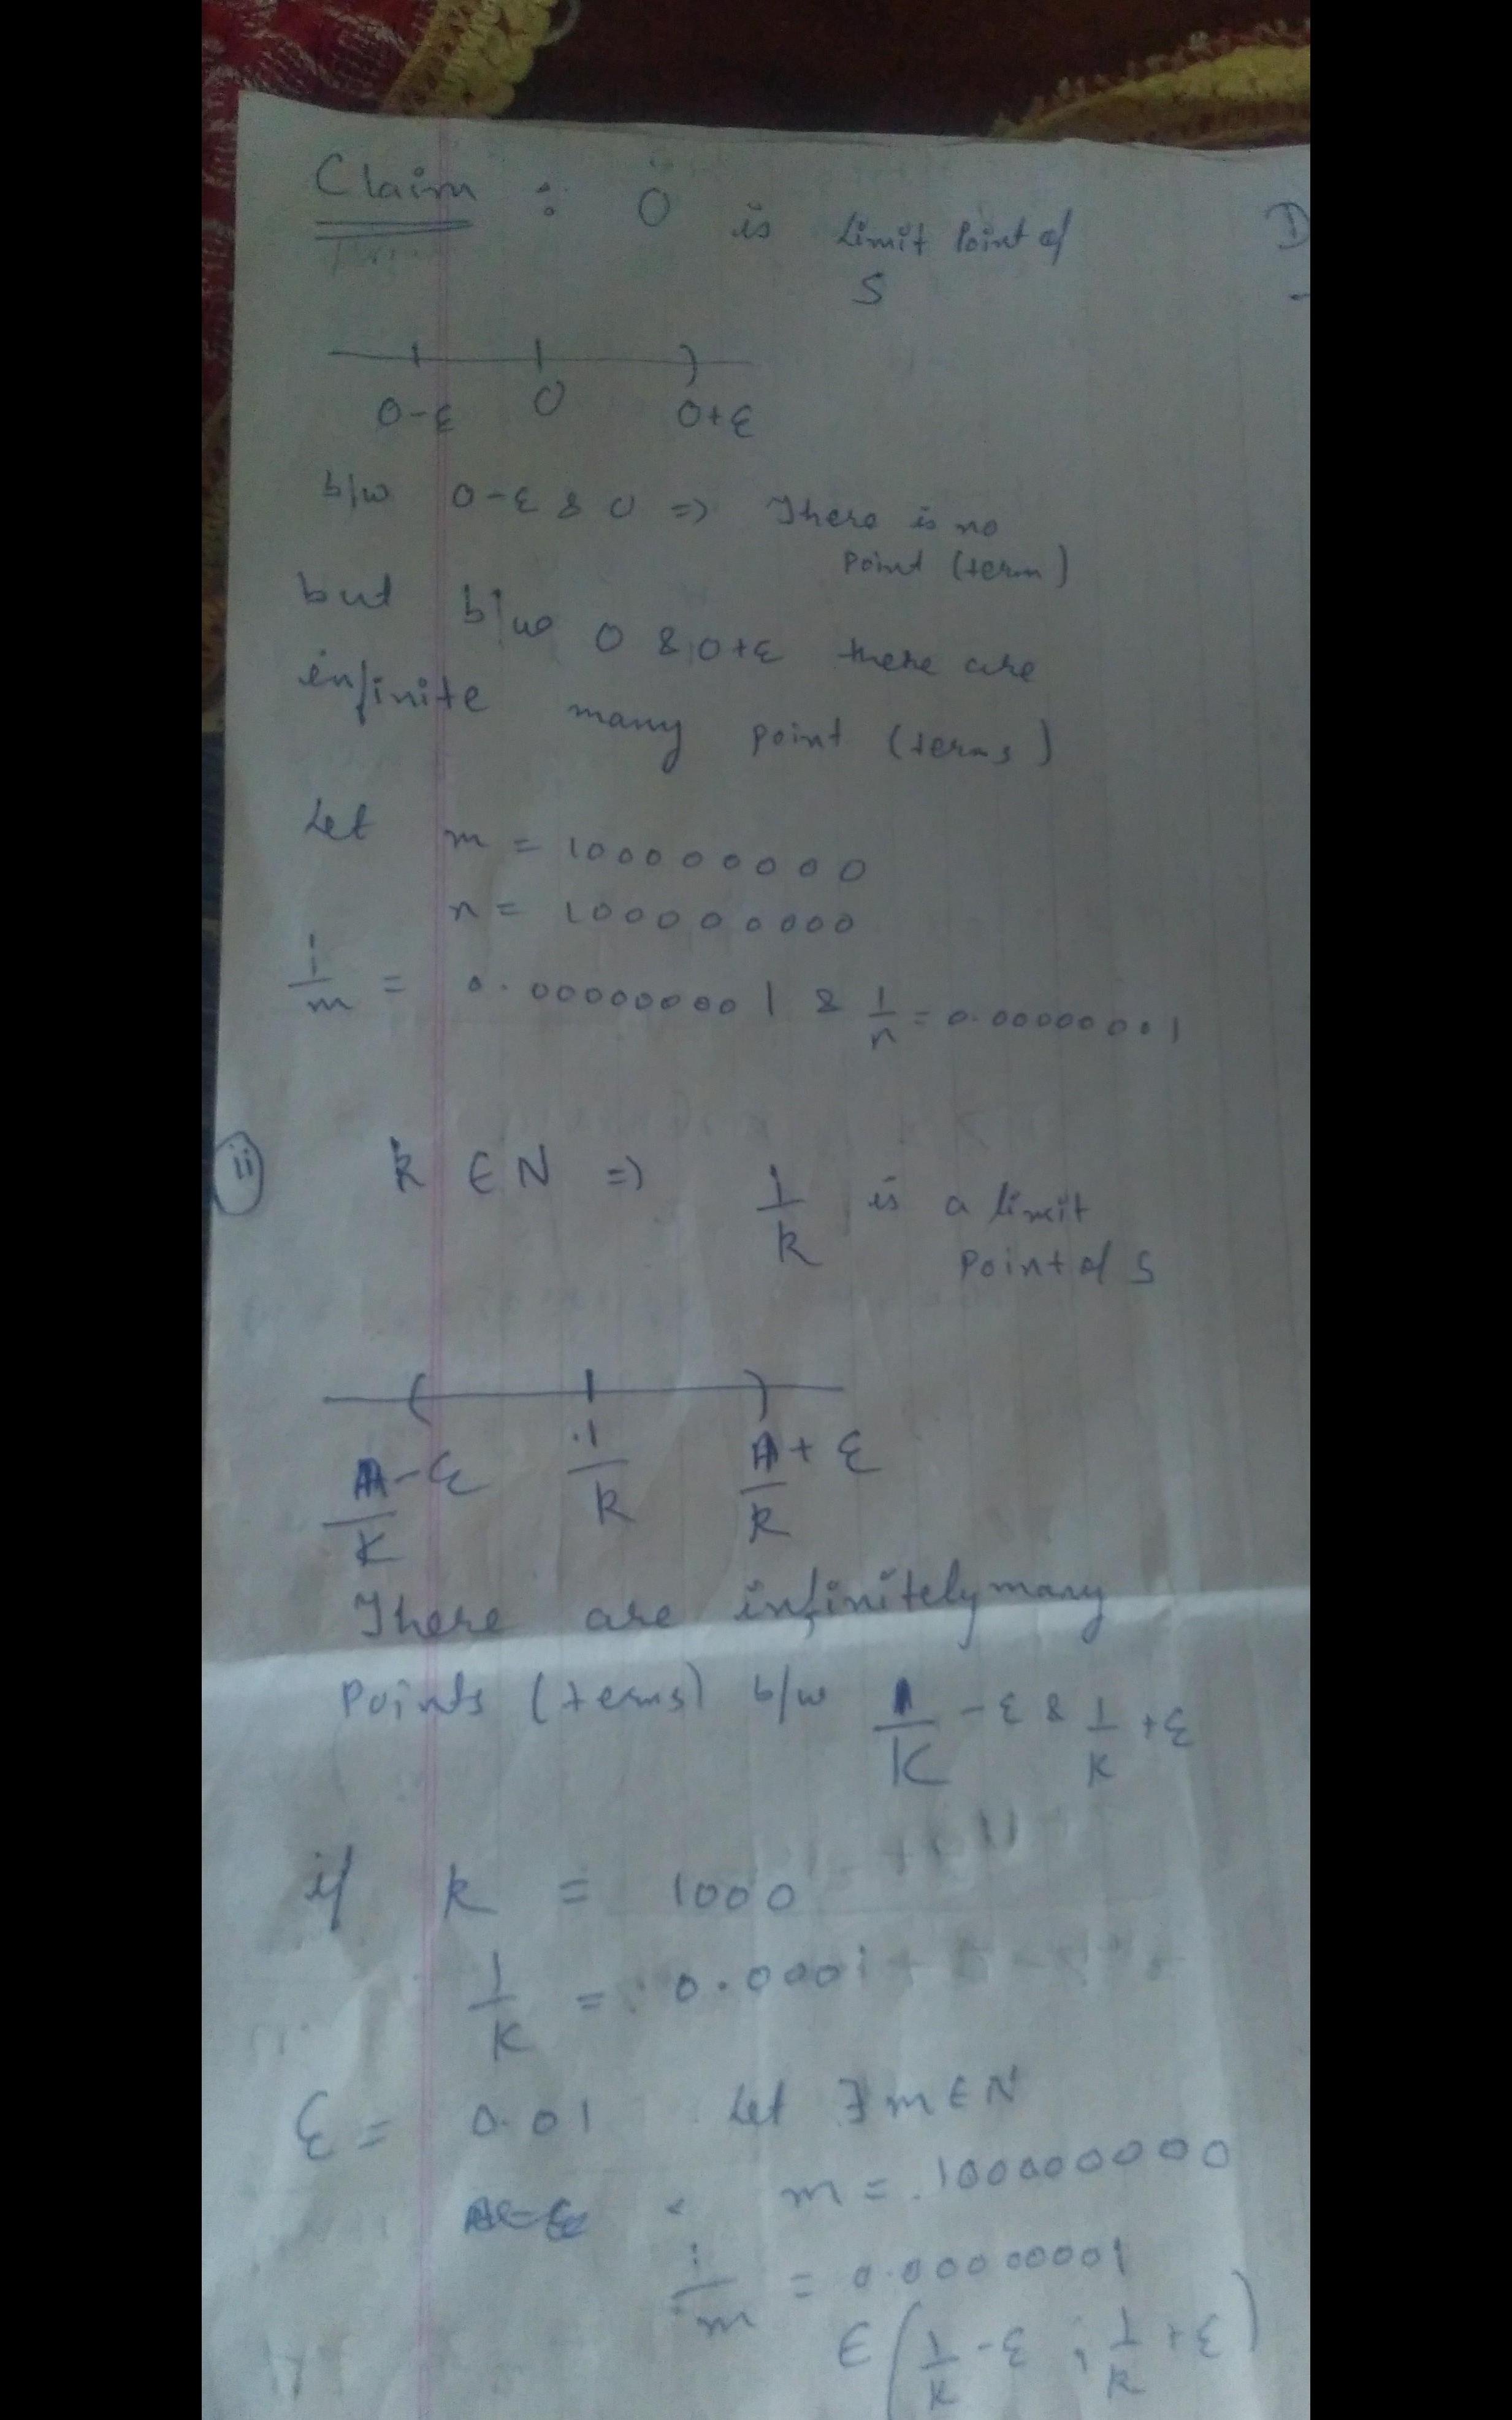 Claim : 0 is Limit Point of
S
D
0-ε 0 0+ε
b/w 0-ε & 0 => There is no
Point (term)
but b/w 0 & 0+ε there are
infinite many point (terms)
Let m = 100000000
n = 100000000
1/m = 0.000000001 & 1/n = 0.00000001
ii k ∈ N => 1/k is a limit
Point of S
1/k-ε 1/k 1/k+ε
There are infinitely many
Points (terms) b/w 1/k - ε & 1/k + ε
if k = 1000
1/k = 0.0001
ε = 0.01 Let ∃ m ∈ N
m = 100000000
1/m = 0.00000001
∈ (1/k - ε, 1/k + ε)